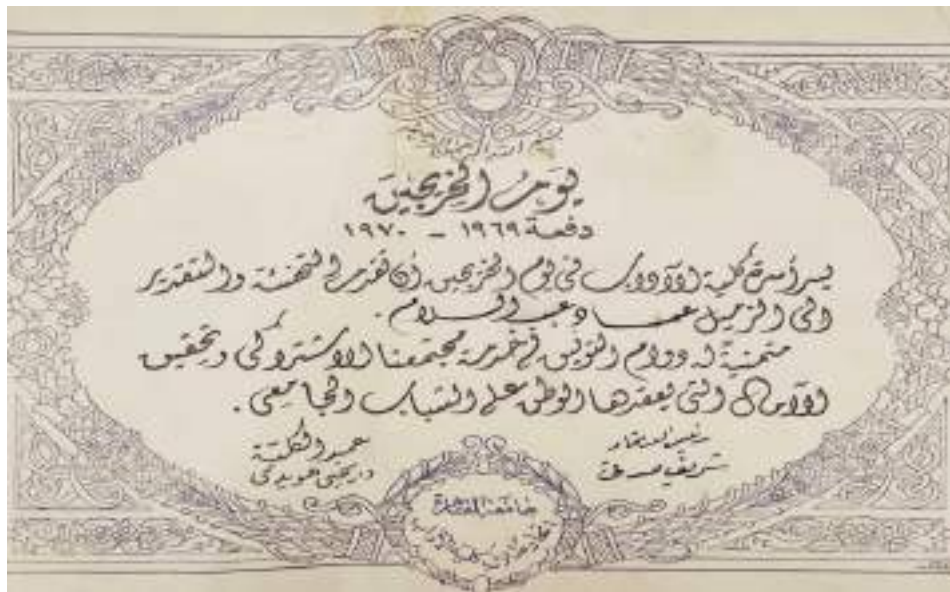 بسم الله الرحمن الرحيم
يوم الخريجين
دفعة ١٩٦٩ - ١٩٧٠
يسر أسرة كلية الآداب في يوم الخريجين أن تقدم التهنئة والتقدير
الى الزميل عماد عبد السلام .
متمنية له دوام التوفيق في خدمة مجتمعنا الاشتراكي وتحقيق
الآمال التي يعقدها الوطن على الشباب الجامعي .
رئيس الاتحاد
شريف
عميد الكلية
د. يحيى هويدي
جامعة القاهرة